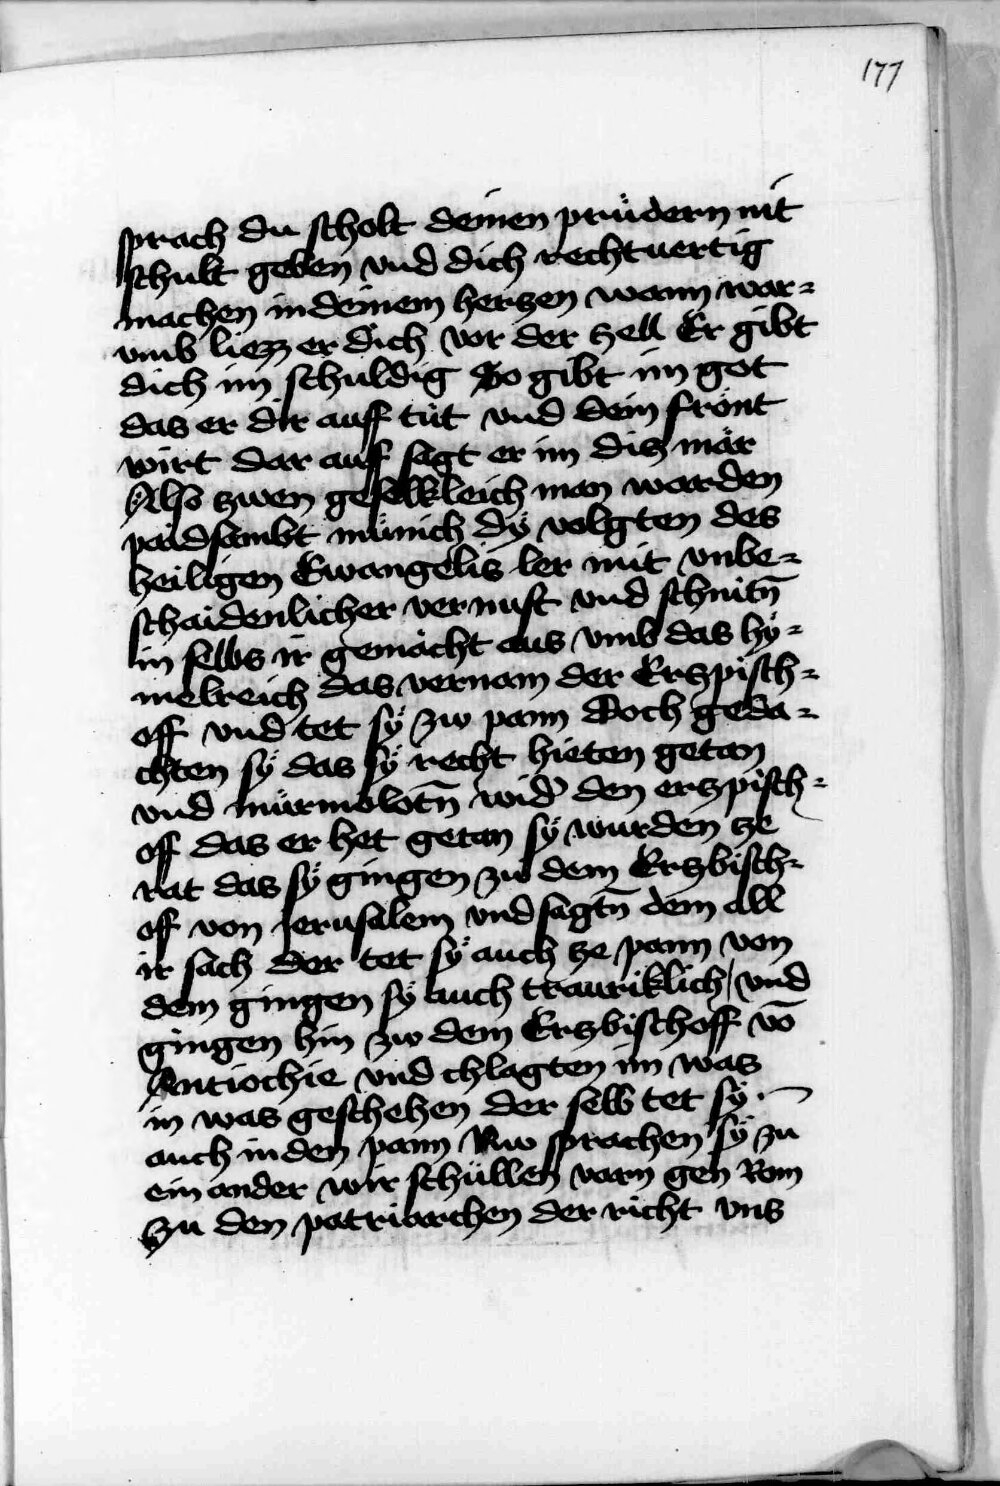 177
sprach du scholt deinen prüdern nit
schult geben vnd dich rechtuertig
machen in deinem herczen wann war=
vmb liezz er dich vor der zell Er gibt
dich im schuldig So gibt im got
das er dir auff tüt vnd dein frönt
wirt dar auf sagt er im dicz mär
Also zwen geselkleich man warden
paidsambt münich dÿ volgten des
heiligen Ewangelis ler mit vnbe=
schaidenlicher vernuft vnd schnitn̄
in selbs ir gemächt aus vmb das hÿ=
melreich das vernam der Erzpisch=
off vnd tet sÿ zw pann Doch geda=
chten sÿ das sÿ recht hieten getan
vnd mürmelotn̄ wid' den erzpisch=
off das er het getan sÿ wurden ze
rat das sÿ gingen zu dem Erzbisch=
off von Jerusalem vnd sagtn̄ dem all
ir sach der tet sÿ auch ze pann von
dem gingen sÿ auch trauriklich / vnd
gingen hin zw dem Erzbischoff vō
Antiochie vnd chlagten im was
in was geschehen der selb tet sÿ
auch in den pann Nw sprachen sÿ zu
ein ander wir schüllen varn gen Rom
zu den patriarchen der richt vns